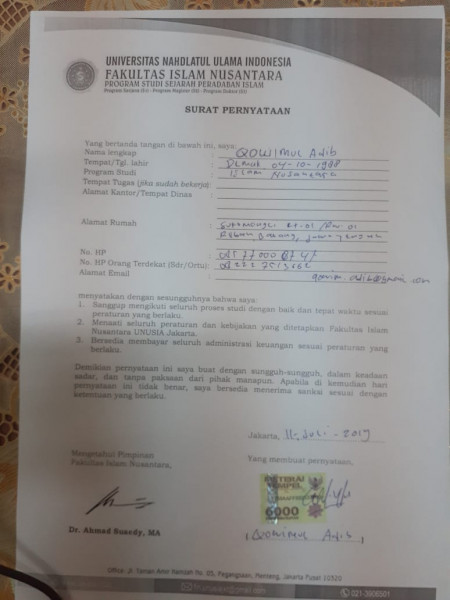 UNIVERSITAS NAHDLATUL ULAMA INDONESIA
FAKULTAS ISLAM NUSANTARA
PROGRAM STUDI SEJARAH PERADABAN ISLAM
Program Sarjana (S1) - Program Magister (S2) - Program Doktor (S3)
SURAT PERNYATAAN
Yang bertanda tangan di bawah ini, saya:
Nama lengkap : QOWIMUL Adib
Tempat/Tgl. lahir : Demak 04-10-1998
Program Studi : Islam Nusantara
Tempat Tugas (jika sudah bekerja) :
Alamat Kantor/Tempat Dinas :
Alamat Rumah : Rt.01 /Rw 01
No. HP :
No. HP Orang Terdekat (Sdr/Ortu) :
Alamat Email :
menyatakan dengan sesungguhnya bahwa saya:
1. Sanggup mengikuti seluruh proses studi dengan baik dan tepat waktu sesuai
peraturan yang berlaku.
2. Menaati seluruh peraturan dan kebijakan yang ditetapkan Fakultas Islam
Nusantara UNUSIA Jakarta.
3. Bersedia membayar seluruh administrasi keuangan sesuai peraturan yang
berlaku.
Demikian pernyataan ini saya buat dengan sungguh-sungguh, dalam keadaan
sadar, dan tanpa paksaan dari pihak manapun. Apabila di kemudian hari
pernyataan ini tidak benar, saya bersedia menerima sanksi sesuai dengan
ketentuan yang berlaku.
Jakarta, 11-Juli-2019
Mengetahui Pimpinan
Fakultas Islam Nusantara,
Yang membuat pernyataan,
METERAI
TEMPEL
6000
Dr. Ahmad Suaedy, MA
(QOWIMUL Adib)
Office : Jl. Taman Amir Hamzah No. 05, Pegangsaan, Menteng, Jakarta Pusat 10320
021-3906501